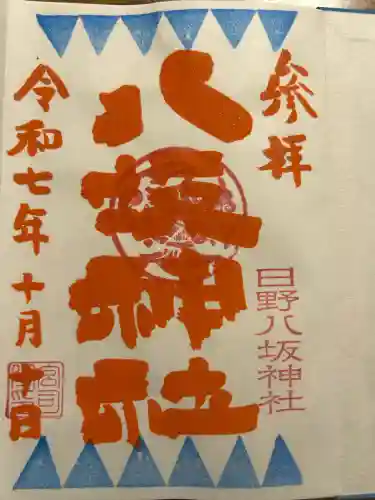 参拝
八坂神社
日野八坂神社
令和七年十月十一日